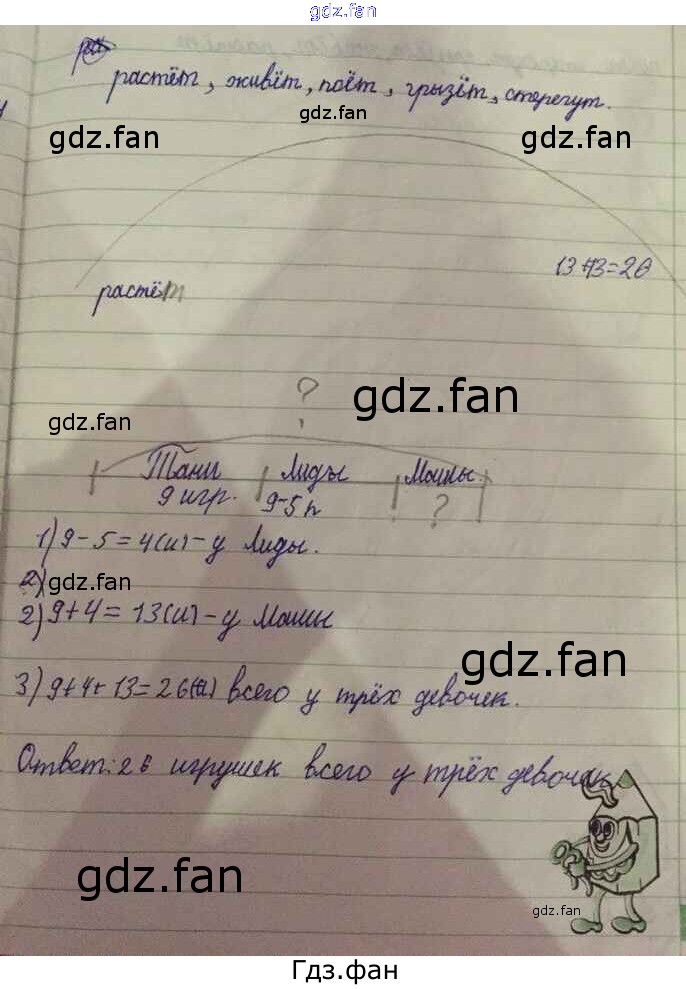 gdz.fan
растёт, живёт, поёт, грызёт, стерегут.
gdz.fan
gdz.fan gdz.fan
13+13=26
растёт
?
gdz.fan
gdz.fan
Тани Лиды Маши
9 игр. 9-5 ?
1) 9-5=4(и)-у Лиды.
2) gdz.fan
2) 9+4=13(и)-у Маши
gdz.fan
3) 9+4+13=26(и) всего у трёх девочек.
Ответ: 26 игрушек всего у трёх девочек
gdz.fan
gdz.fan
Гдз.фан